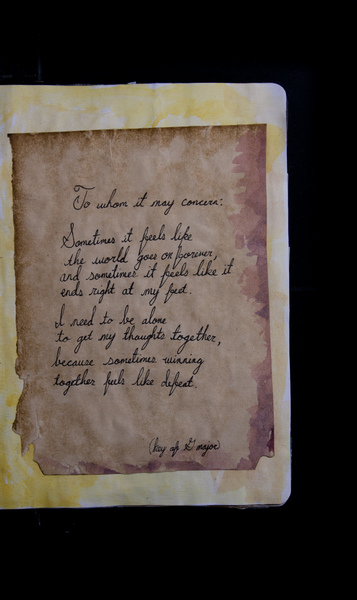 To whom it may concern:
Sometimes it feels like
the world goes on forever,
and sometimes it feels like it
ends right at my feet.
I need to be alone
to get my thoughts together,
because sometimes winning
together feels like defeat.
(key of G major)